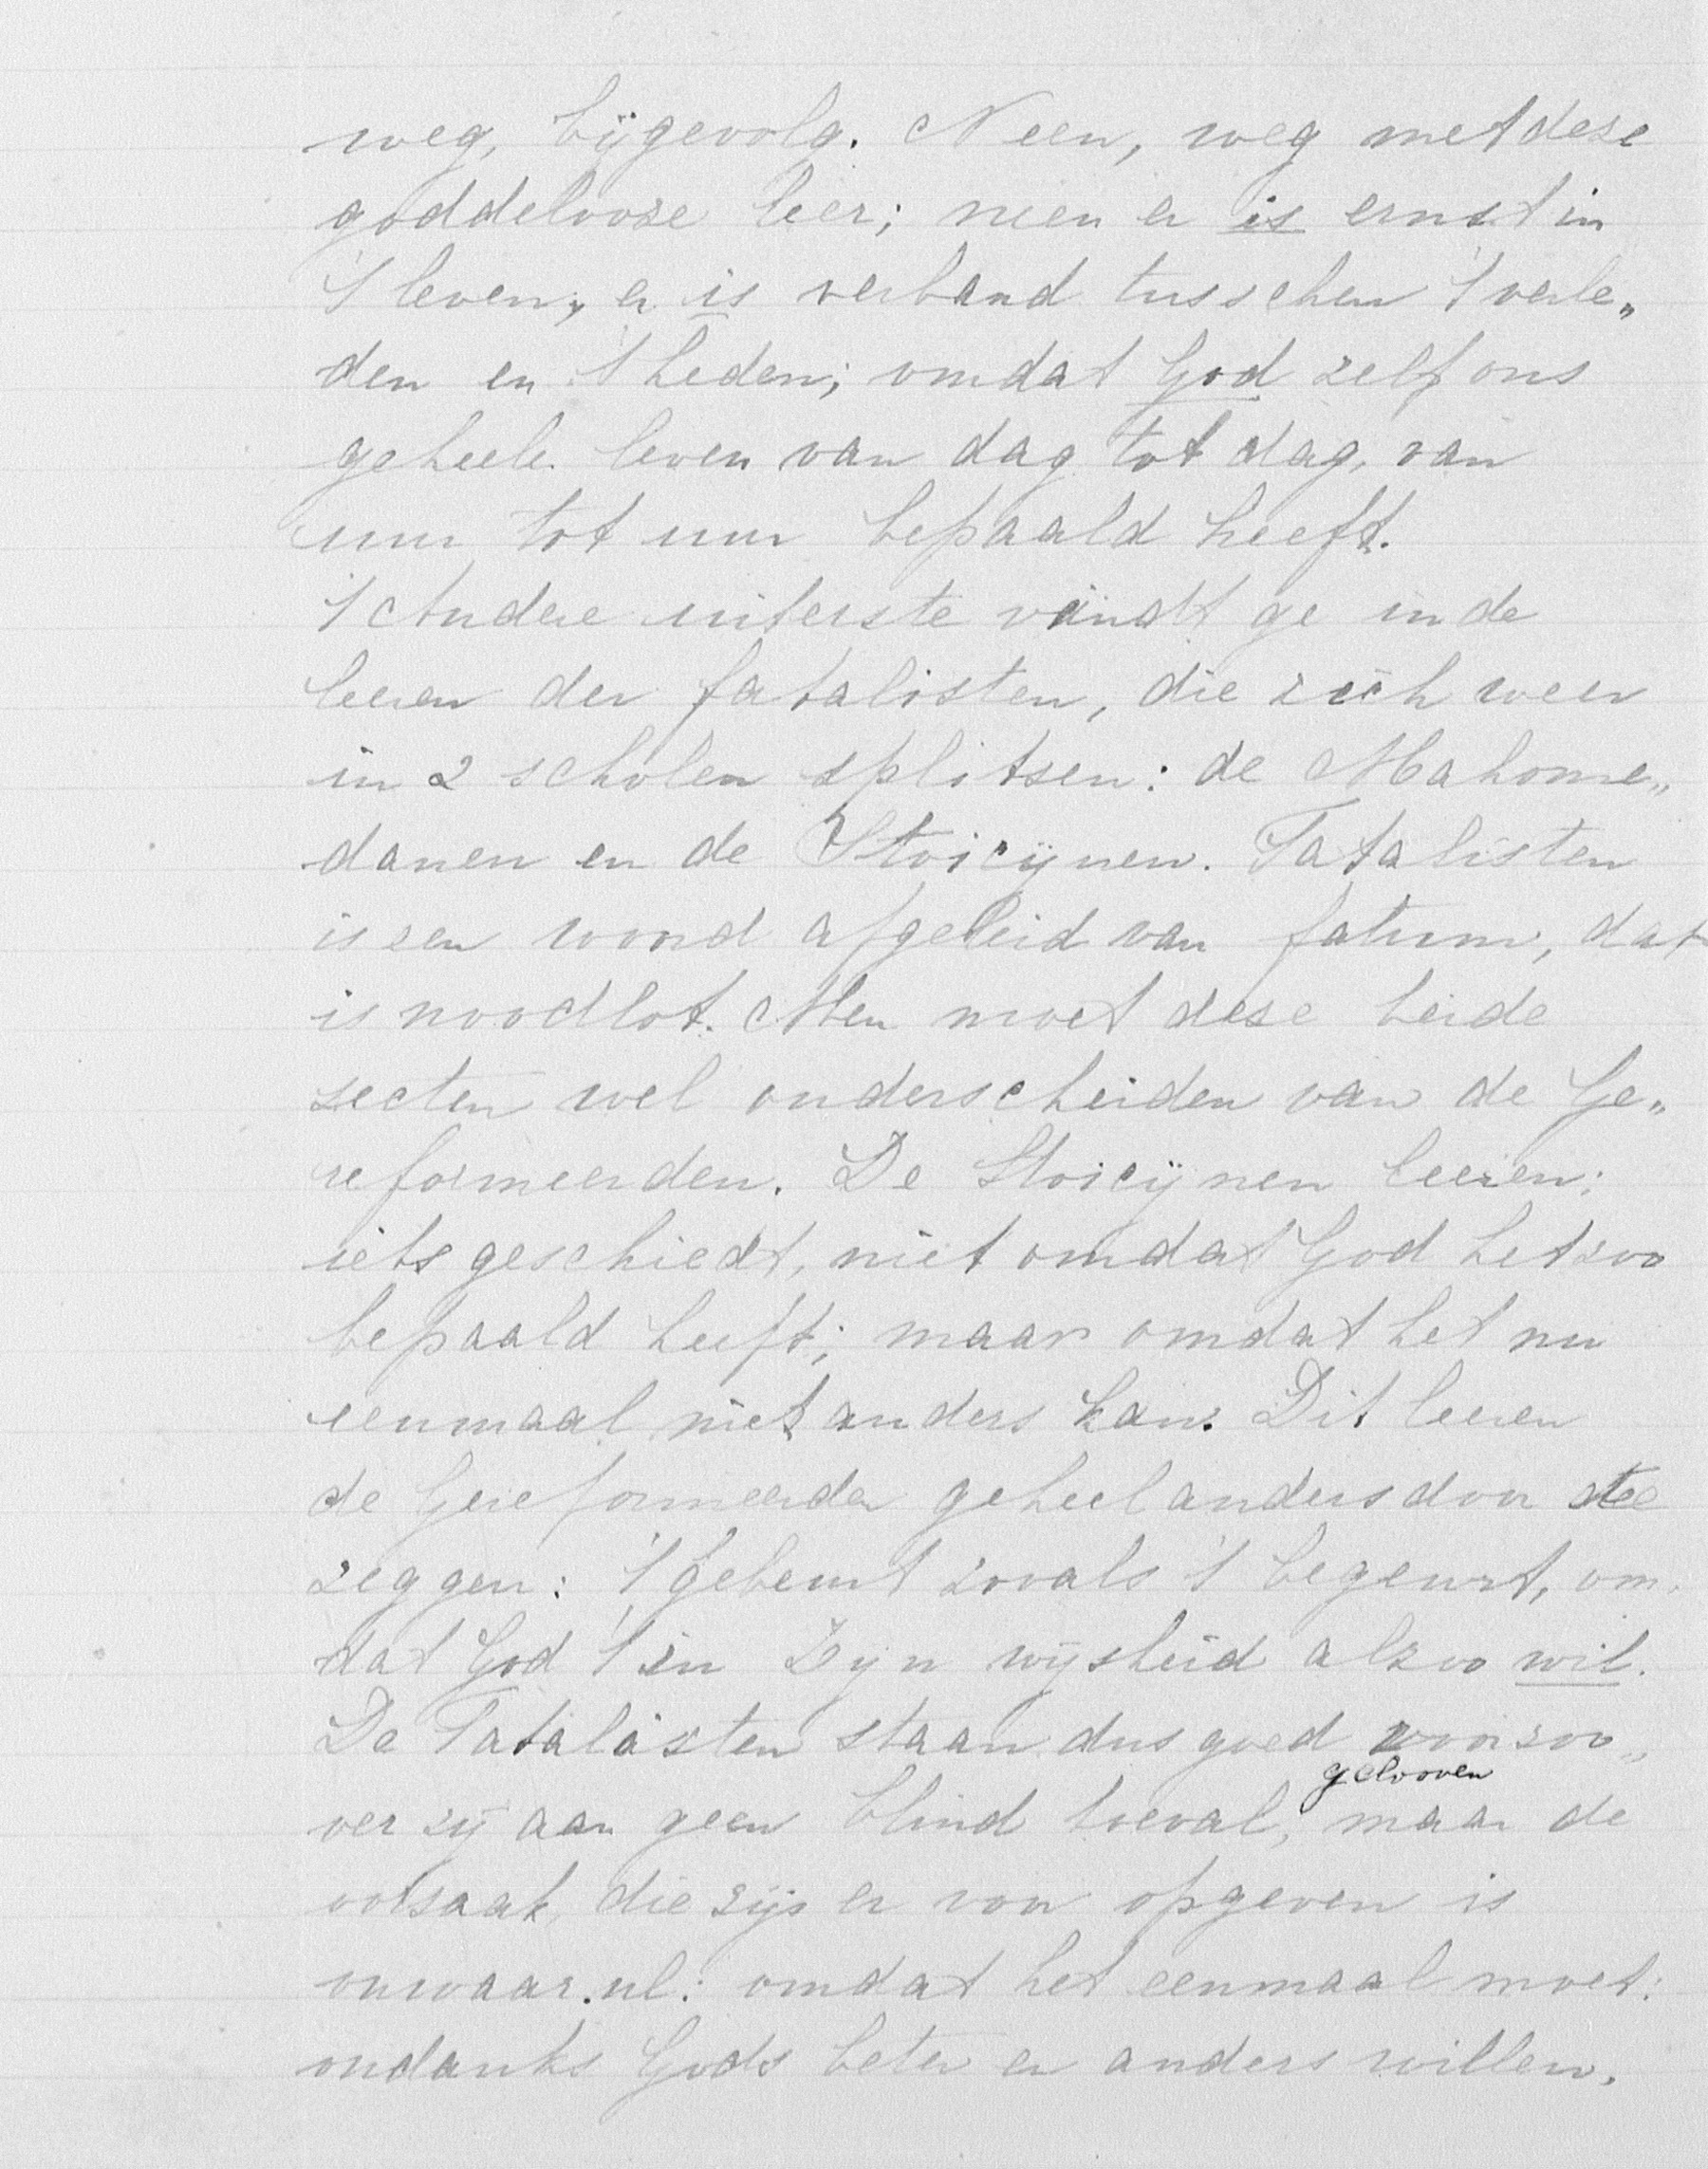 weg, bijgevolg. Neen, weg met deze
goddelooze leer; neen er is ernst in
't leven, er is verband tusschen 't verle„
den en 't heden; omdat God zelf ons
geheele leven van dag tot dag, van
uur tot uur bepaald heeft.
't Andere uiterste vindt ge in de
leeren der fatalisten, die zich weer
in 2 scholen splitsen: de Mahome„
danen en de Stoicijnen. Fatalisten
is een woord afgeleid van fatum, dat
is noodlot. Men moet deze beide
secten wel onderscheiden van de Ge„
reformeerden. De Stoicijnen leeren:
iets geschiedt, niet omdat God het zoo
bepaald heeft; maar omdat het nu
eenmaal niet anders kan. Dit leeren
de Gereformeerden geheel anders door te
zeggen: 't gebeurt zooals 't begeurt, om„
dat God 't in Zijn wijsheid alzoo wil.
De Fatalisten staan dus goed voorzoo„
gelooven
ver zij aan geen blind toeval, maar de
oorzaak, die zij er voor opgeven is
onwaar. nl: omdat het eenmaal moet:
ondanks Gods beter en anders willen.